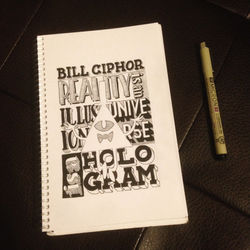 BILL CIPHOR
REALITY is an
ILLUS UNIVE
ION RSE
HOLO
GRAM